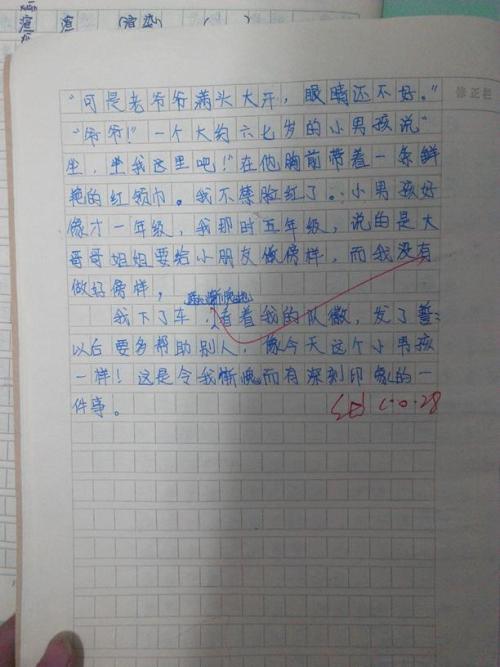 渲 渲 (渲染) ( )
修正栏
“可是老爷爷满头大汗，眼睛还不好。”
“爷爷!”一个大约六七岁的小男孩说“
坐，坐我这里吧!”在他胸前带着一条鲜
艳的红领巾。我不禁脸红了。小男孩好
像才一年级，我那时五年级，说的是大
哥哥姐姐要给小朋友做榜样，而我没有
做好榜样，
我下了车，看着我的队徽，发了誓：
以后要多帮助别人，像今天这个小男孩
一样！这是令我惭愧而有深刻印象的一
件事。